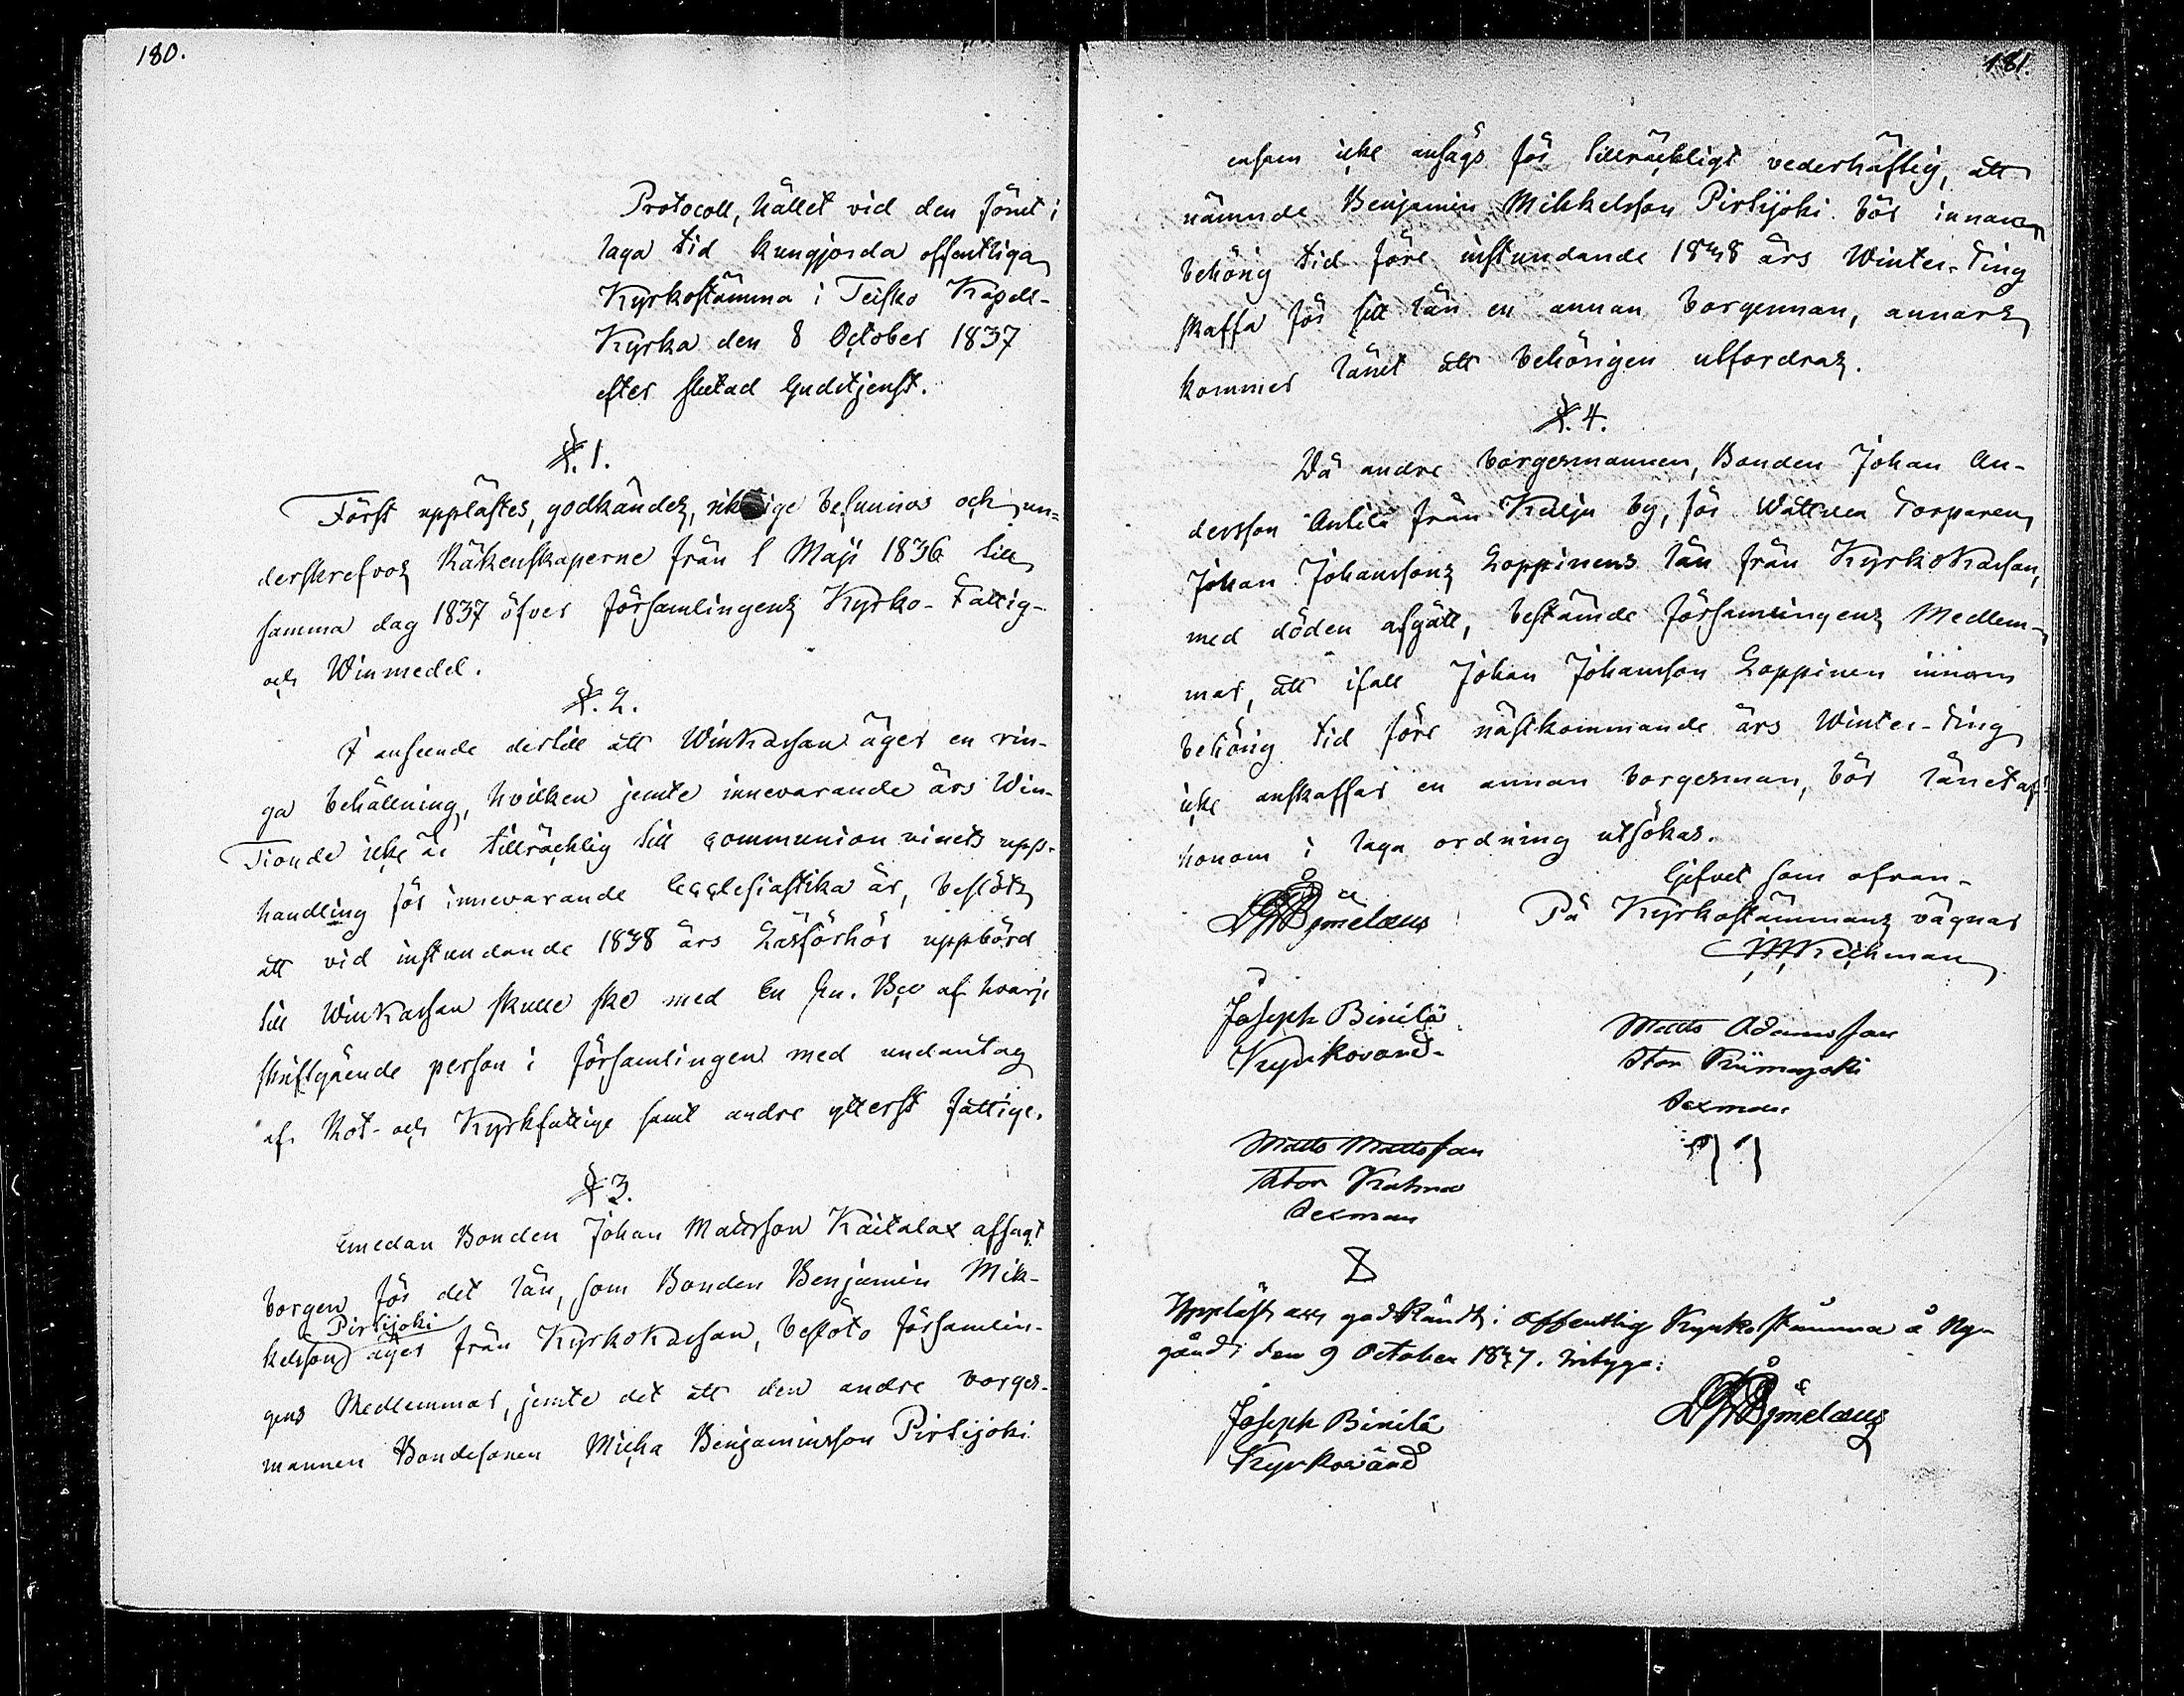 180.
Protocoll, hållet vid den förut i
laga tid kungjorda offentliga
Kyrkostämma i Teisko Kapell-
Kyrka den 8 October 1837
efter slutad Gudstjenst.
§. 1.
Först upplästes, godkändes, riktige befunnos och un-
derskrefvos Räkenskaperne från 1 Maji 1836 till
samma dag 1837 öfver församlingens Kyrko- Fattig-
och Winmedel.
§. 2.
I anseende dertill att WinKassan äger en rin-
ga behållning, hvilken jemte innevarande års Win-
Tionde icke är tillräcklig till communion vinets upp-
handling för innevarande Ecclesiastika år, beslöts
att vid instundande 1838 års Läsförhör uppbörd
till WinKassan skulle ske med En Bco af hvarje
skriftgående person i församlingen med undantag
af Rot- och Kyrkfattige samt andre ytterst fattige.
§ 3.
Emedan Bonden Johan Mattsson Kaitalax afsagt
borgen för det lån, som Bonden Benjamin Mik-
Pirttijoki
kelsson äger från KyrkoKassan, beslöto församlin-
gens Medlemmar, jemte det att den andre borges-
mannen Bondesonen Micha Benjaminsson Pirttijoki
181.
ensam icke ansågs för tillräckligt vederhäftig, att
nämnde Benjamin Mikkelsson Pirttijoki bör innan
behörig tid före instundande 1838 års Winter-Ting
skaffa för sitt lån en annan borgesman, annars
kommer lånet att behörigen utfordras.
§. 4.
Då andre borgesmannen, Bonden Johan An-
dersson Anttila från Kulju by, för Torparen
Johan Johanssons Loppinens lån från KyrkoKassan,
med döden afgått, bestämde församlingens Medlem-
mar, att ifall Johan Johansson Loppinen innom
behörig tid före nästkommande års Winter-Ting
icke anskaffar en annan borgesman, bör lånet af
honom i laga ordning utsökas.
Gifvet som ofvan.
På Kyrkostämmans vägnar
Joseph Binilä
Kyrkovärd.
Matts Adamsson
Sexman
Matts Mattsson
Sexman
Uppläst och godkändt i offentlig Kyrkostämma å Ny-
gård den 9 October 1837. Intyga:
Joseph Binilä
Kyrkowärd